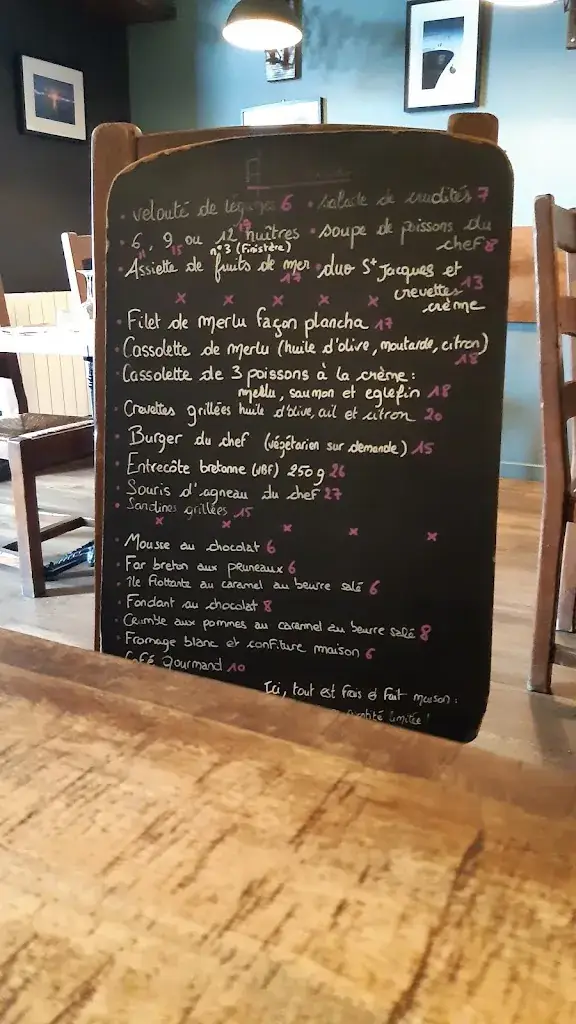 • velouté de légumes 6 • salade de crudités 7
• 6, 9 ou 12 huîtres • soupe de poissons du
11 15 19 n°3 (Finistère) chef 8
• Assiette de fruits de mer • duo St Jacques et
17 crevettes 13
crème
x x x x x
• Filet de merlu façon plancha 17
• Cassolette de merlu (huile d'olive, moutarde, citron)
18
• Cassolette de 3 poissons à la crème :
merlu, saumon et eglefin 18
• Crevettes grillées huile d'olive, ail et citron 20
• Burger du chef (végétarien sur demande) 15
• Entrecôte bretonne (VBF) 250g 26
• Souris d'agneau du chef 27
• Sardines grillées 15
x x x x x
• Mousse au chocolat 6
• Far breton aux pruneaux 6
• île flottante au caramel au beurre salé 6
• Fondant au chocolat 8
• Crumble aux pommes au caramel au beurre salé 8
• Fromage blanc et confiture maison 6
• Café gourmand 10
Ici, tout est frais & fait maison :
quantité limitée !